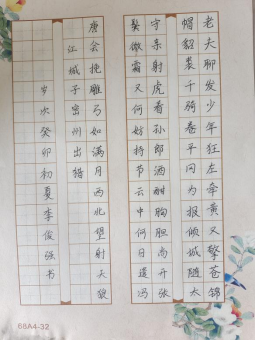 老夫聊发少年狂左牵黄又擎苍锦
帽貂裘千骑卷平冈为报倾城随太
守亲射虎看孙郎酒酣胸胆尚开张
鬓微霜又何妨持节云中何日遣冯
唐会挽雕弓如满月西北望射天狼
江城子密州出猎
岁次癸卯初夏李俊强书
68A4-32